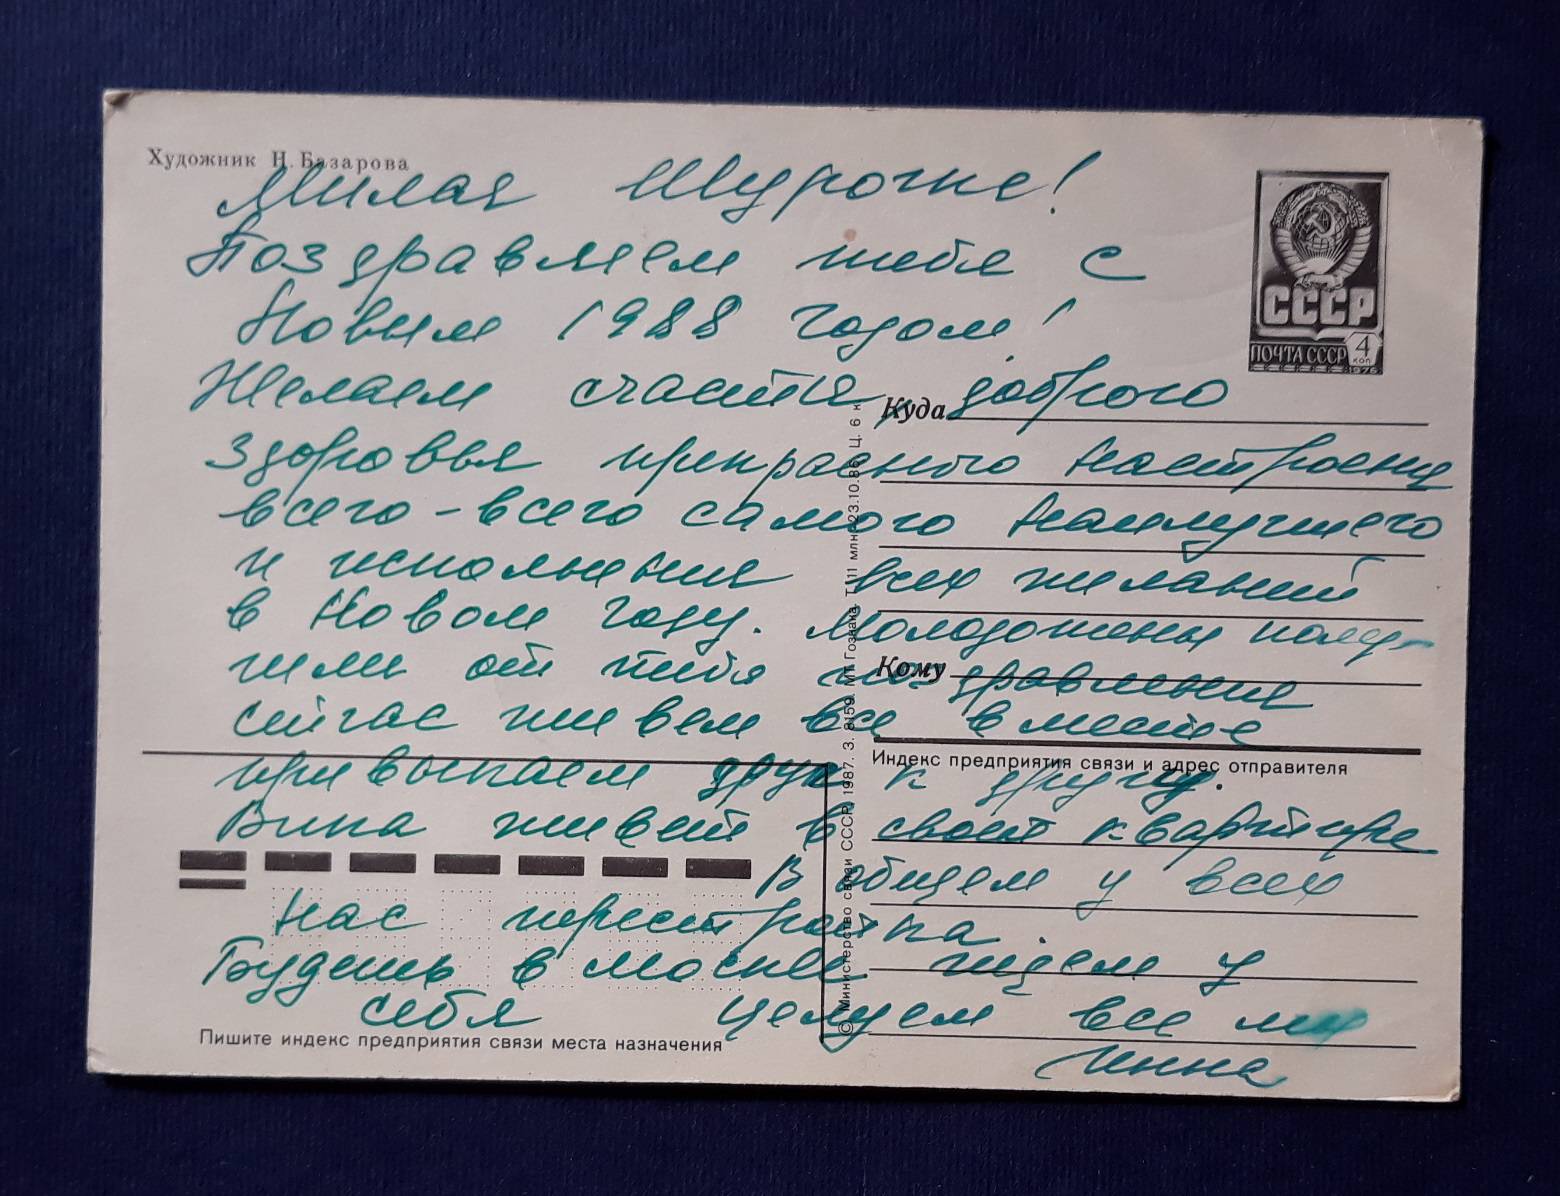 Художник Н. Базарова
Милая Шурочке!
Поздравляем тебя с
Новым 1988 годом!
СССР
ПОЧТА СССР 4 коп
1976
Желаем счастья, доброго
Куда
здоровья прекрасного настроения
всего-всего самого наилучшего
и исполнения всех желаний
в Новом году. Молодожены полу-
чили от тебя поздравления
Кому
сейчас живем все вместе
Индекс предприятия связи и адрес отправителя
привыкаем друг к другу.
Вика живет в своей квартире
В общем у всех
нас перестройка.
Будешь в Москве ждем у
себя целуем все мы
Пишите индекс предприятия связи места назначения
Инна
© Министерство связи СССР, 1987. З. 8159. МТ Гознака. Т. 11 млн. 23.10.86. Ц. 6 к.